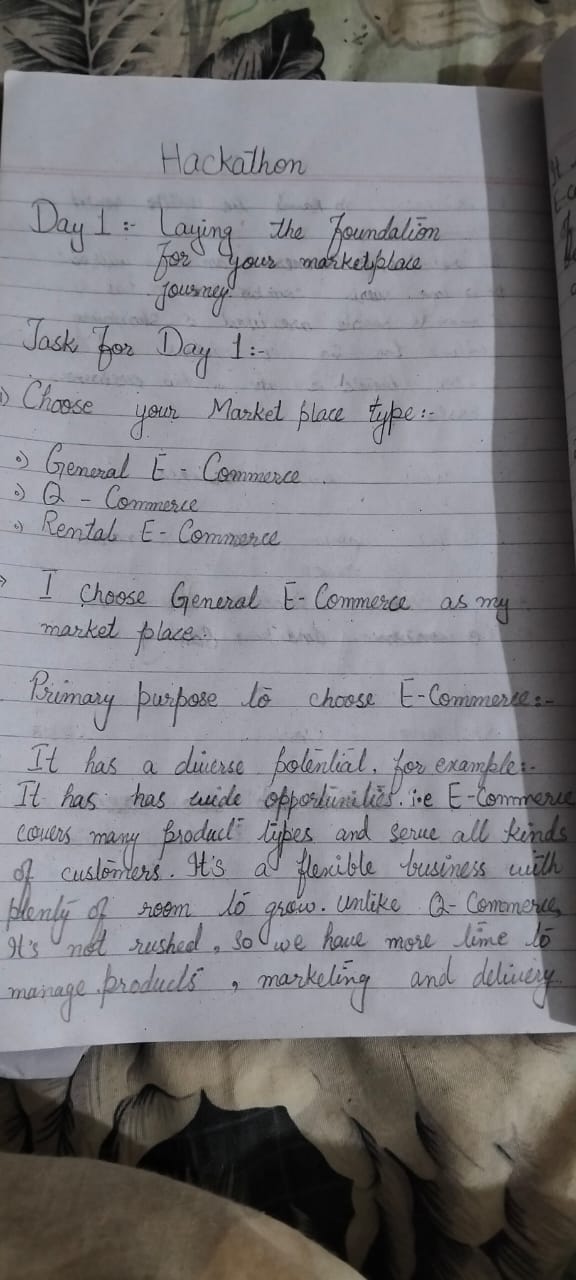 Hackathon
Day 1 :- Laying the Foundation
for your marketplace
journey.
Task for Day 1:-
1) Choose your Market place type:-
o) General E - Commerce
o) Q - Commerce
o) Rental E - Commerce
I choose General E-Commerce as my
market place.
Primary purpose to choose E-Commerce:-
It has a diverse potential. for example:-
It has has wide opportunities. i.e E-Commerce
covers many product types and serve all kinds
of customers. It's a flexible business with
plenty of room to grow. unlike Q-Commerce,
It's not rushed, so we have more time to
manage products, marketing and delivery.